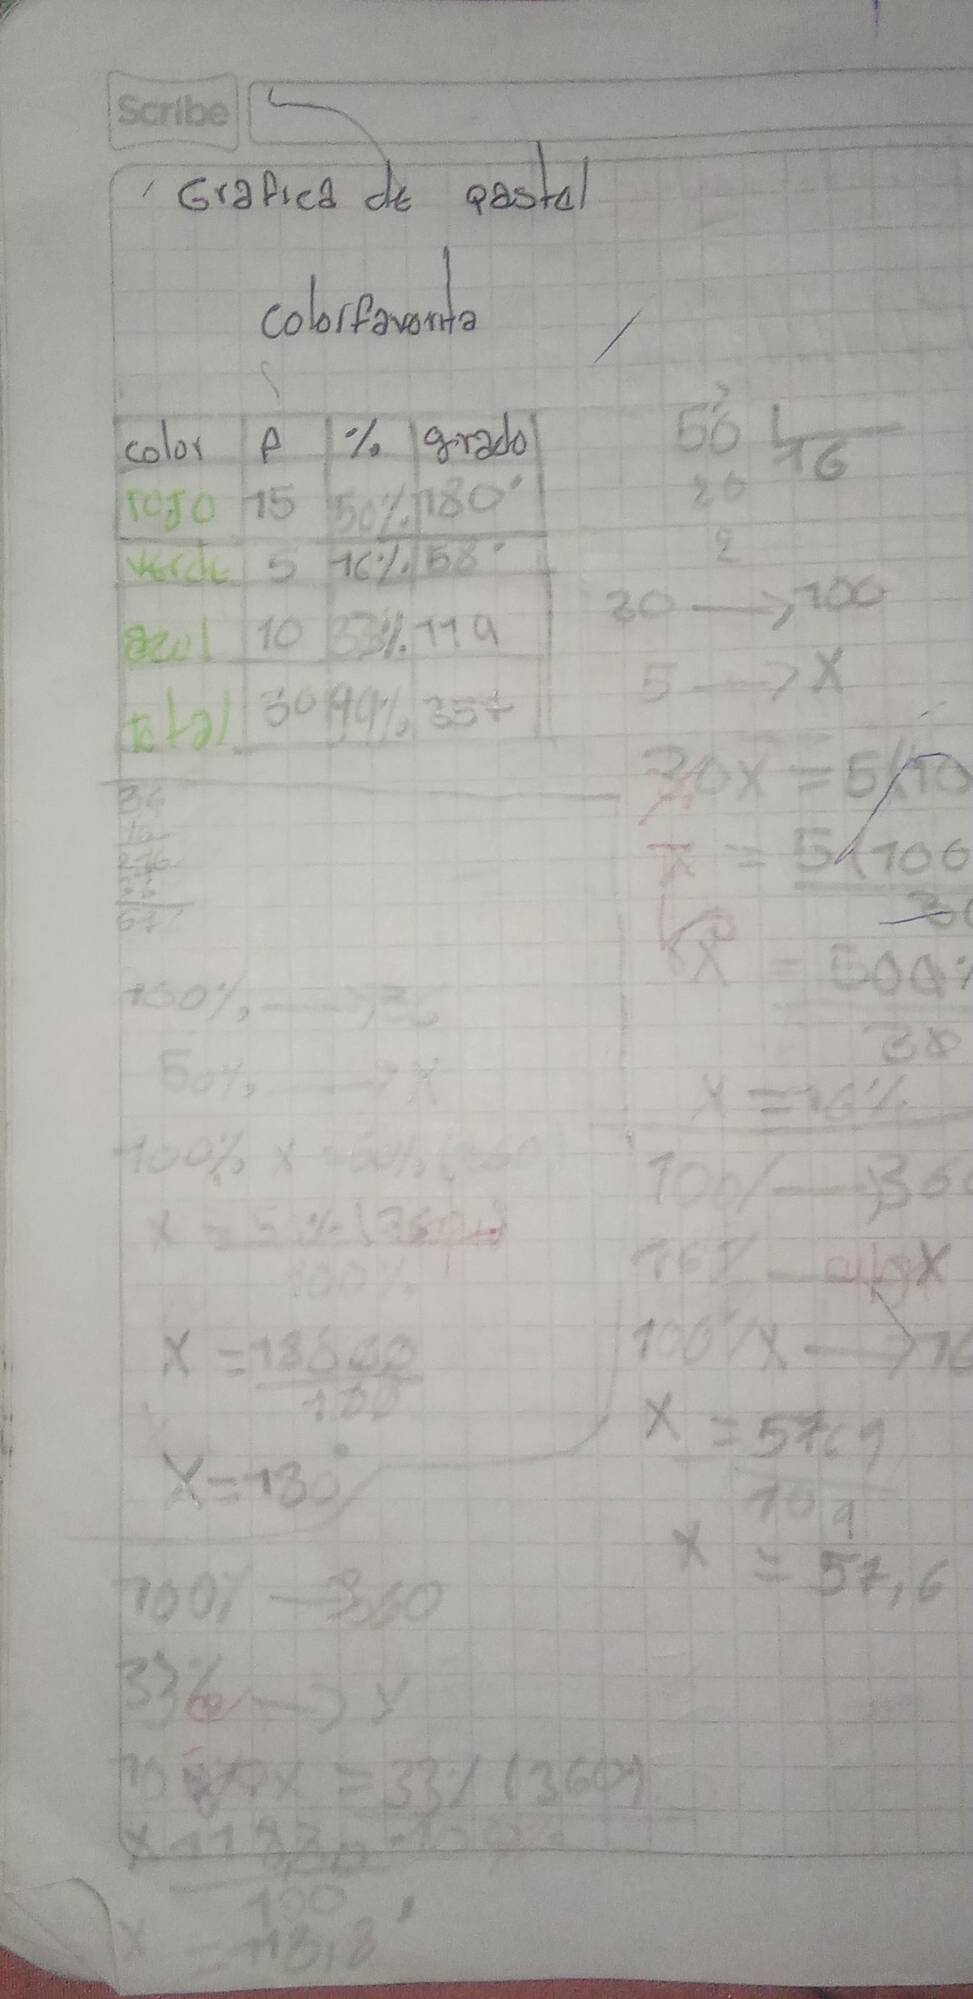 Scribe
Grafica de pastel
colorfavorita
color f % grado
rojo 15 50% 180°
verde 5 16% 58°
azul 10 33% 119
total 30 99% 357
50
16
20
2
30 → 100
5 → X
30X = 5(10
X = 5(100
30
X = 500%
30
X = 16%
36
216
57
100% → 36
50% → X
100% X = 50% (360)
X = 50% (360)
100%
X = 18000
100
X = 180°
100% → 360
16% → X
100% X → 16
X = 5760
100
X = 57,6
100% → 360
33% → X
X = 33% (360)
100
X = 118,8°